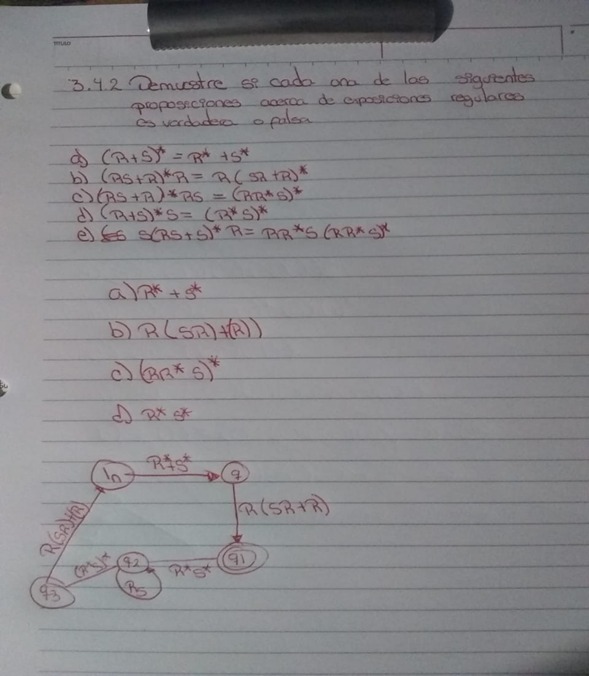 3.4.2 Demuestre si cada una de las siguientes
proposiciones acerca de expresiones regulares
es verdadera o falsa
a) (R+S)* = R* + S*
b) (RS+R)*R = R(SR+R)*
c) (RS+R)*RS = (RR*S)*
d) (R+S)*S = (R*S)*
e) S(RS+S)*R = RR*S(RR*S)*
a) R* + S*
b) R(SR)+(R))
c) (RR* S)*
d) R* S*
R*+S*
In
q
R(SR)+(R)
R(SR+R)
(R*S)*
q2
R*S*
q1
q3
RS